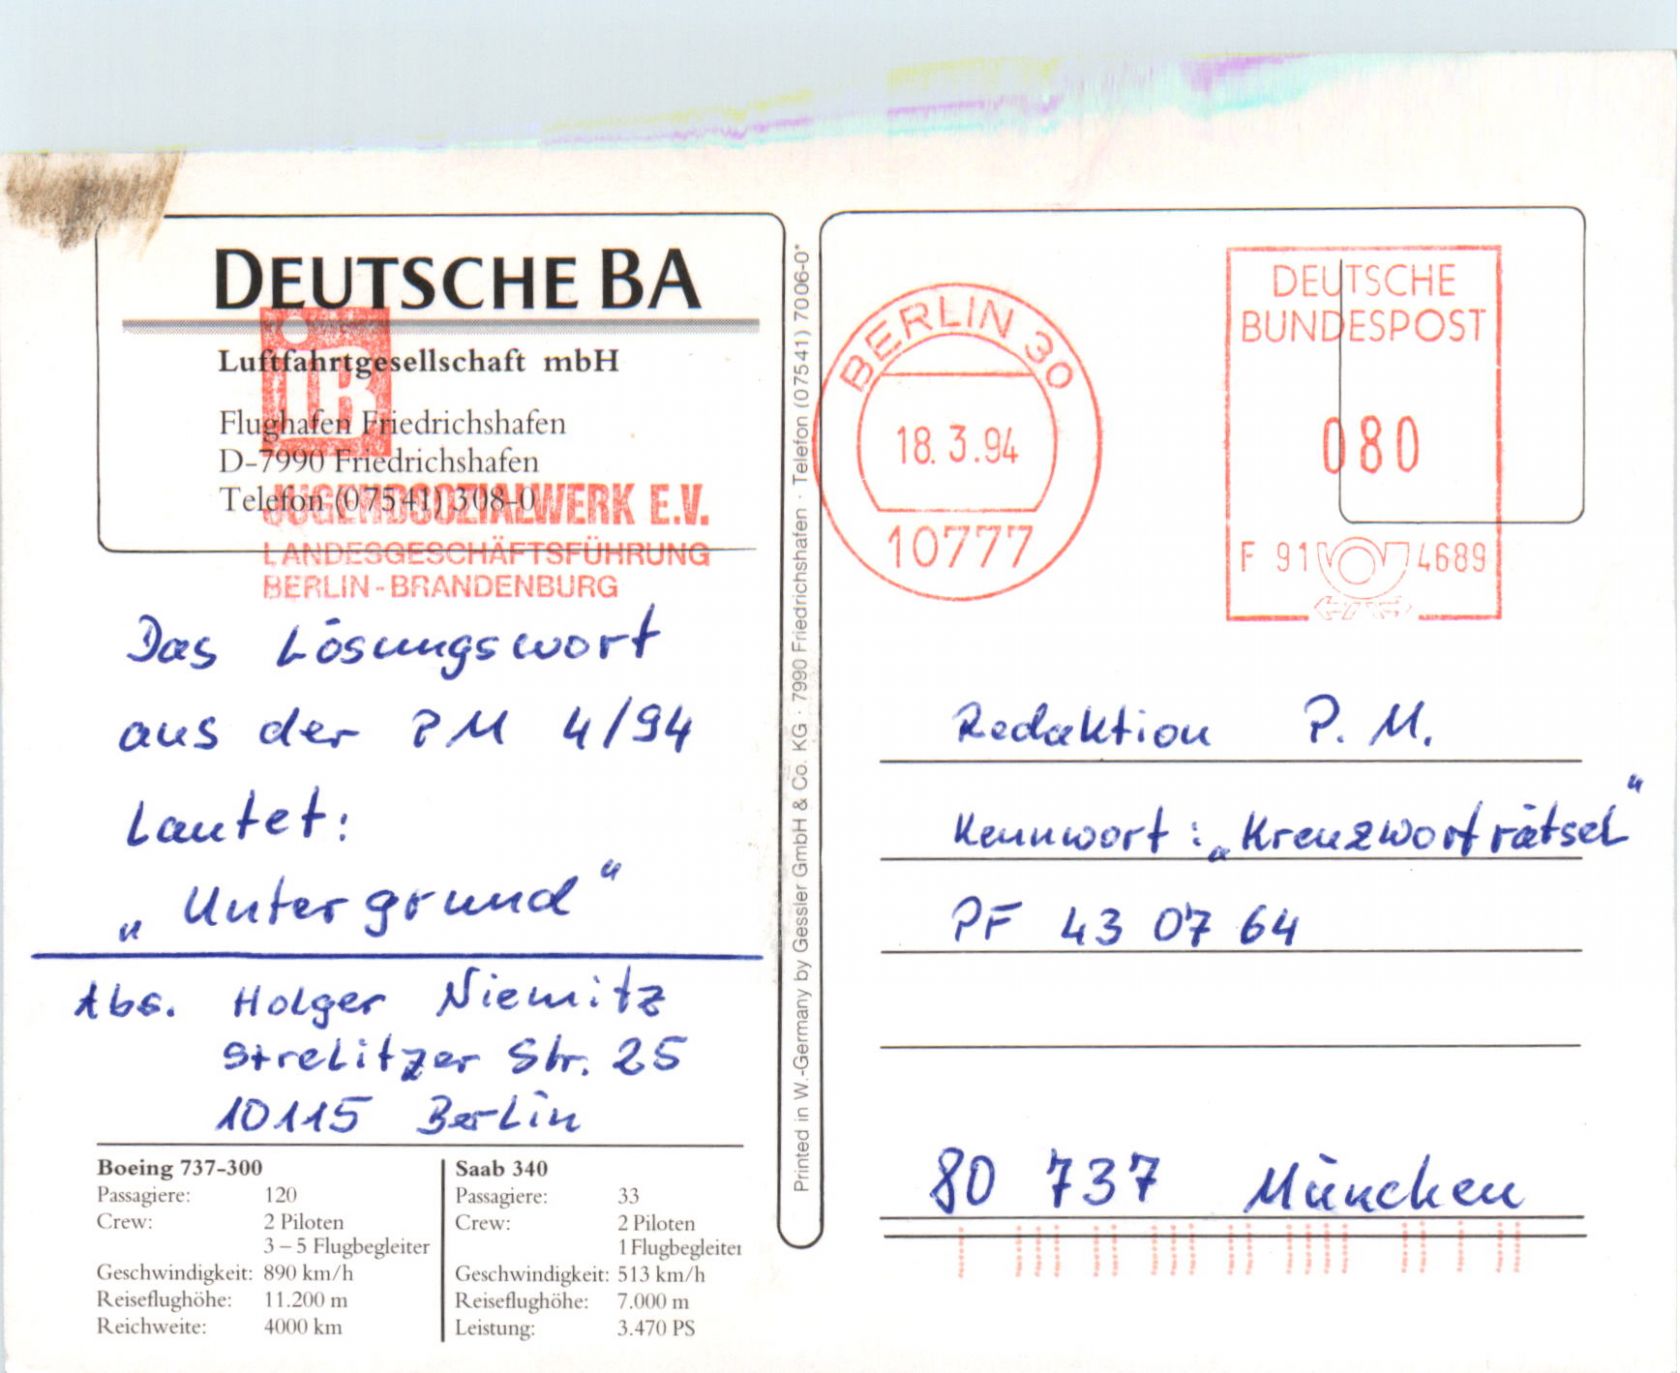 DEUTSCHE BA
Luftfahrtgesellschaft mbH
Flughafen Friedrichshafen
D-7990 Friedrichshafen
Telefon (07541) 308-0
iB
JUGENDSOZIALWERK E.V.
LANDESGESCHÄFTSFÜHRUNG
BERLIN-BRANDENBURG
Das Lösungswort
aus der PM 4/94
Lautet:
„Untergrund“
Abs. Holger Niemitz
Strelitzer Str. 25
10115 Berlin
Boeing 737-300
Passagiere: 120
Crew: 2 Piloten
3–5 Flugbegleiter
Geschwindigkeit: 890 km/h
Reiseflughöhe: 11.200 m
Reichweite: 4000 km
Saab 340
Passagiere: 33
Crew: 2 Piloten
1 Flugbegleiter
Geschwindigkeit: 513 km/h
Reiseflughöhe: 7.000 m
Leistung: 3.470 PS
Printed in W.-Germany by Gessler GmbH & Co. KG · 7990 Friedrichshafen · Telefon (07541) 7006-0*
BERLIN 30
18.3.94
10777
DEUTSCHE
BUNDESPOST
080
F 91 4689
Redaktion P.M.
Kennwort: „Kreuzworträtsel“
PF 43 07 64
80 737 München